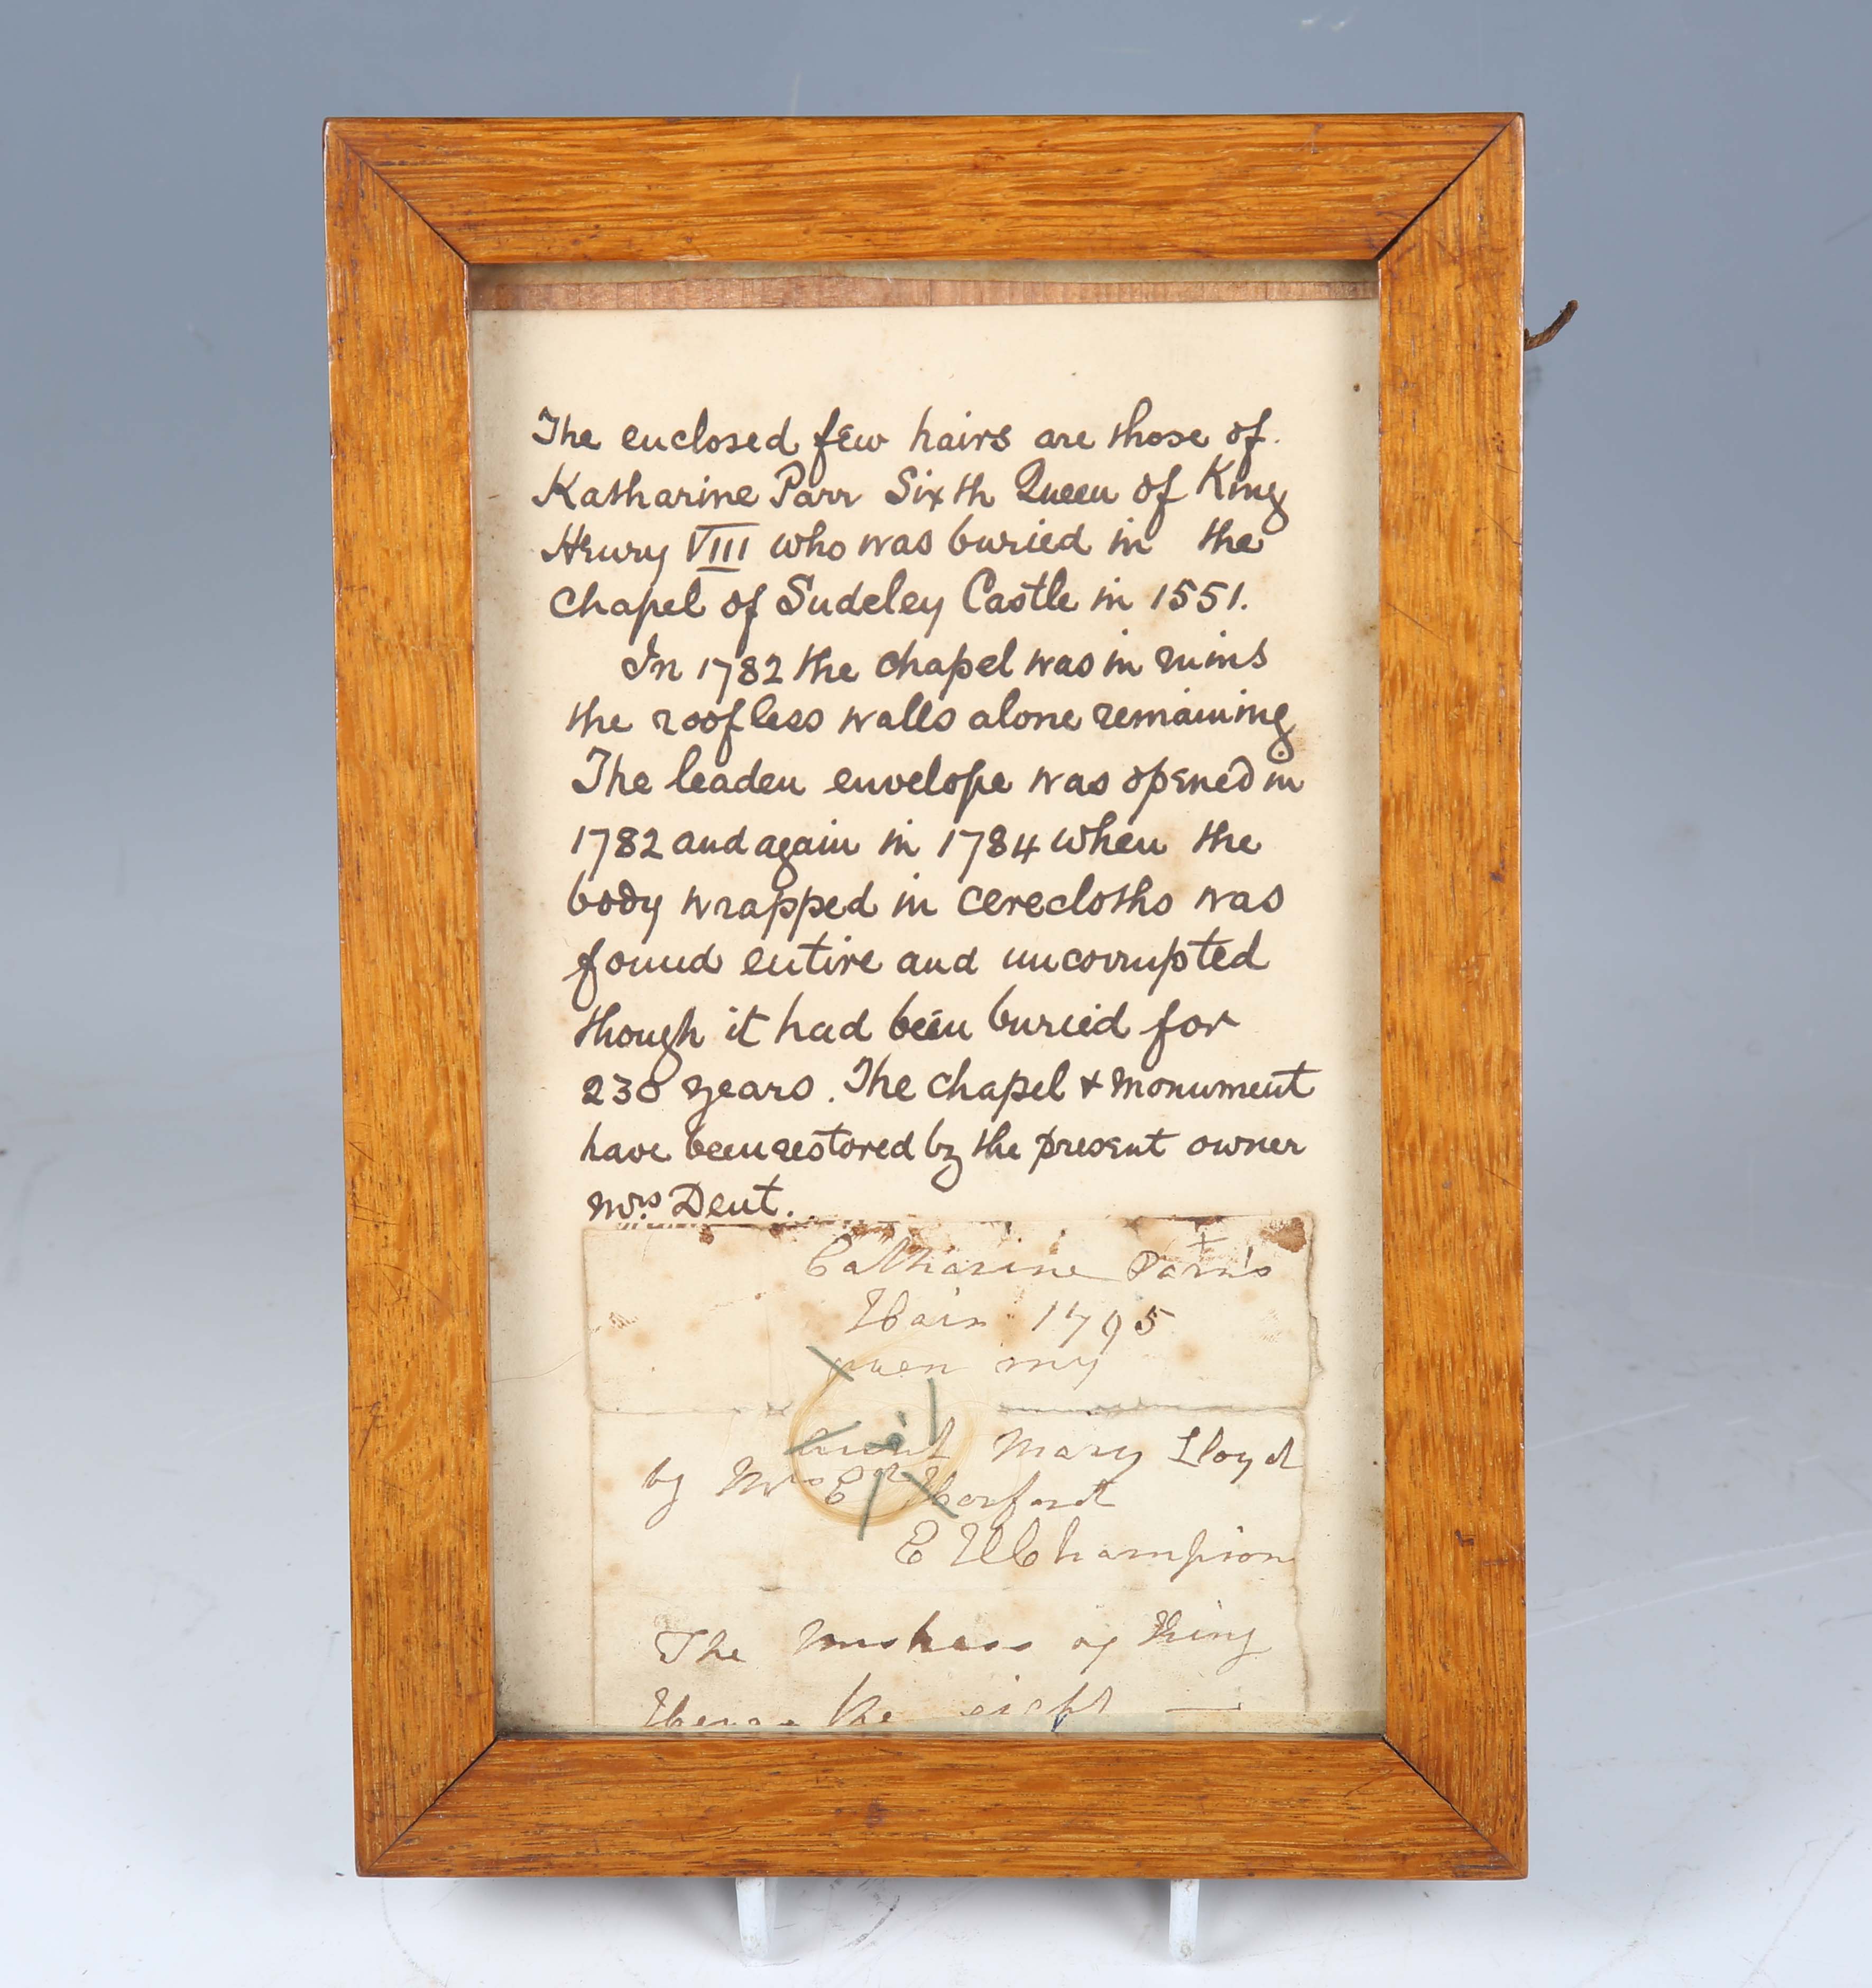 The enclosed few hairs are those of
Katharine Parr Sixth Queen of King
Henry VIII who was buried in the
Chapel of Sudeley Castle in 1551.
In 1782 the chapel was in ruins
the roofless walls alone remaining
The leaden envelope was opened in
1782 and again in 1784 when the
body wrapped in cerecloths was
found entire and uncorrupted
though it had been buried for
230 years. The chapel & monument
have been restored by the present owner
Mrs. Dent.
Catharine Parr's
Hair 1795
given my
aunt Mary Lloyd
by Mrs E Harford
E Champion
The of King
the eight —